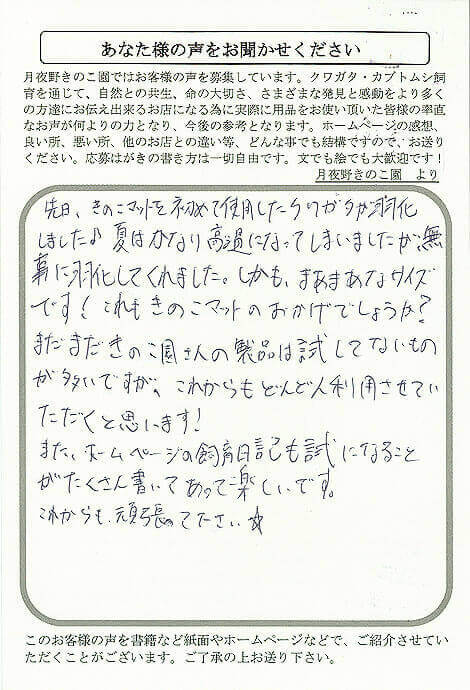 あなた様の声をお聞かせください
月夜野きのこ園ではお客様の声を募集しています。クワガタ・カブトムシ飼
育を通じて、自然との共生、命の大切さ、さまざまな発見と感動をより多く
の方達にお伝え出来るお店になる為に実際に用品をお使い頂いた皆様の率直
なお声が何よりの力となり、今後の参考となります。ホームページの感想、
良い所、悪い所、他のお店との違い等、どんな事でも結構ですので、お送り
ください。応募はがきの書き方は一切自由です。文でも絵でも大歓迎です！
月夜野きのこ園　より
先日、きのこマットを初めて使用したクワガタが羽化
しました♪夏はかなり高温になってしまいましたが無
事に羽化してくれました。しかも、まあまあなサイズ
です！これもきのこマットのおかげでしょうか？
まだまだきのこ園さんの製品は試してないもの
が多いですが、これからもどんどん利用させてい
ただくと思います！
また、ホームページの飼育日記も試になること
がたくさん書いてあって楽しいです。
これからも頑張って下さい☆
このお客様の声を書籍など紙面やホームページなどで、ご紹介させてい
ただくことがございます。ご了承の上お送り下さい。